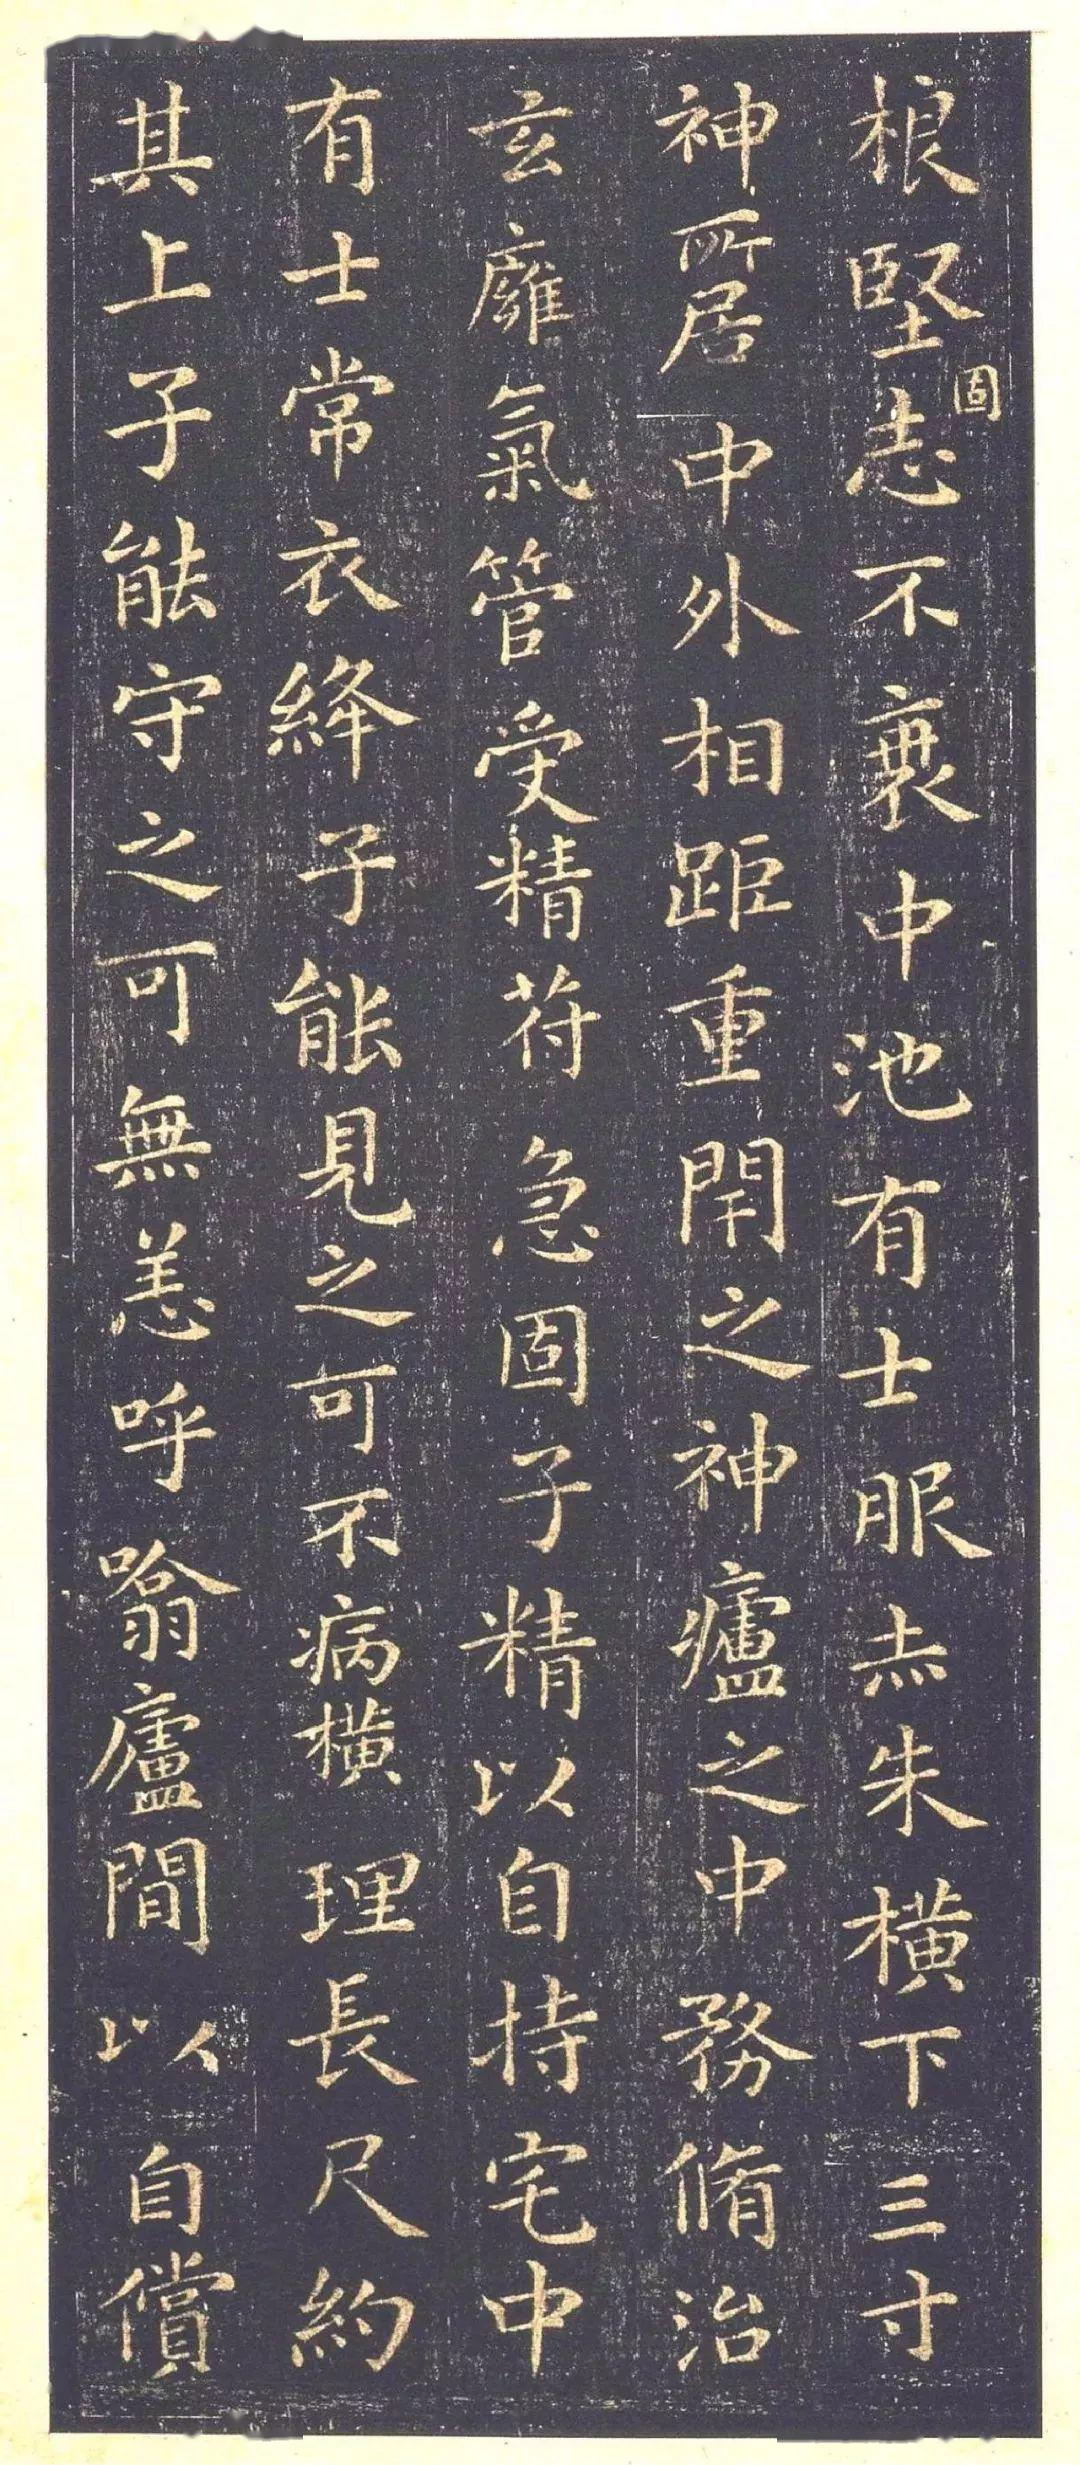 根堅志不衰中池有士服赤朱横下三寸
固
神所居中外相距重閇之神廬之中務脩治
玄癕氣管受精苻急固子精以自持宅中
有士常衣絳子能見之可不病横理長尺約
其上子能守之可無恙呼噏廬間以自償